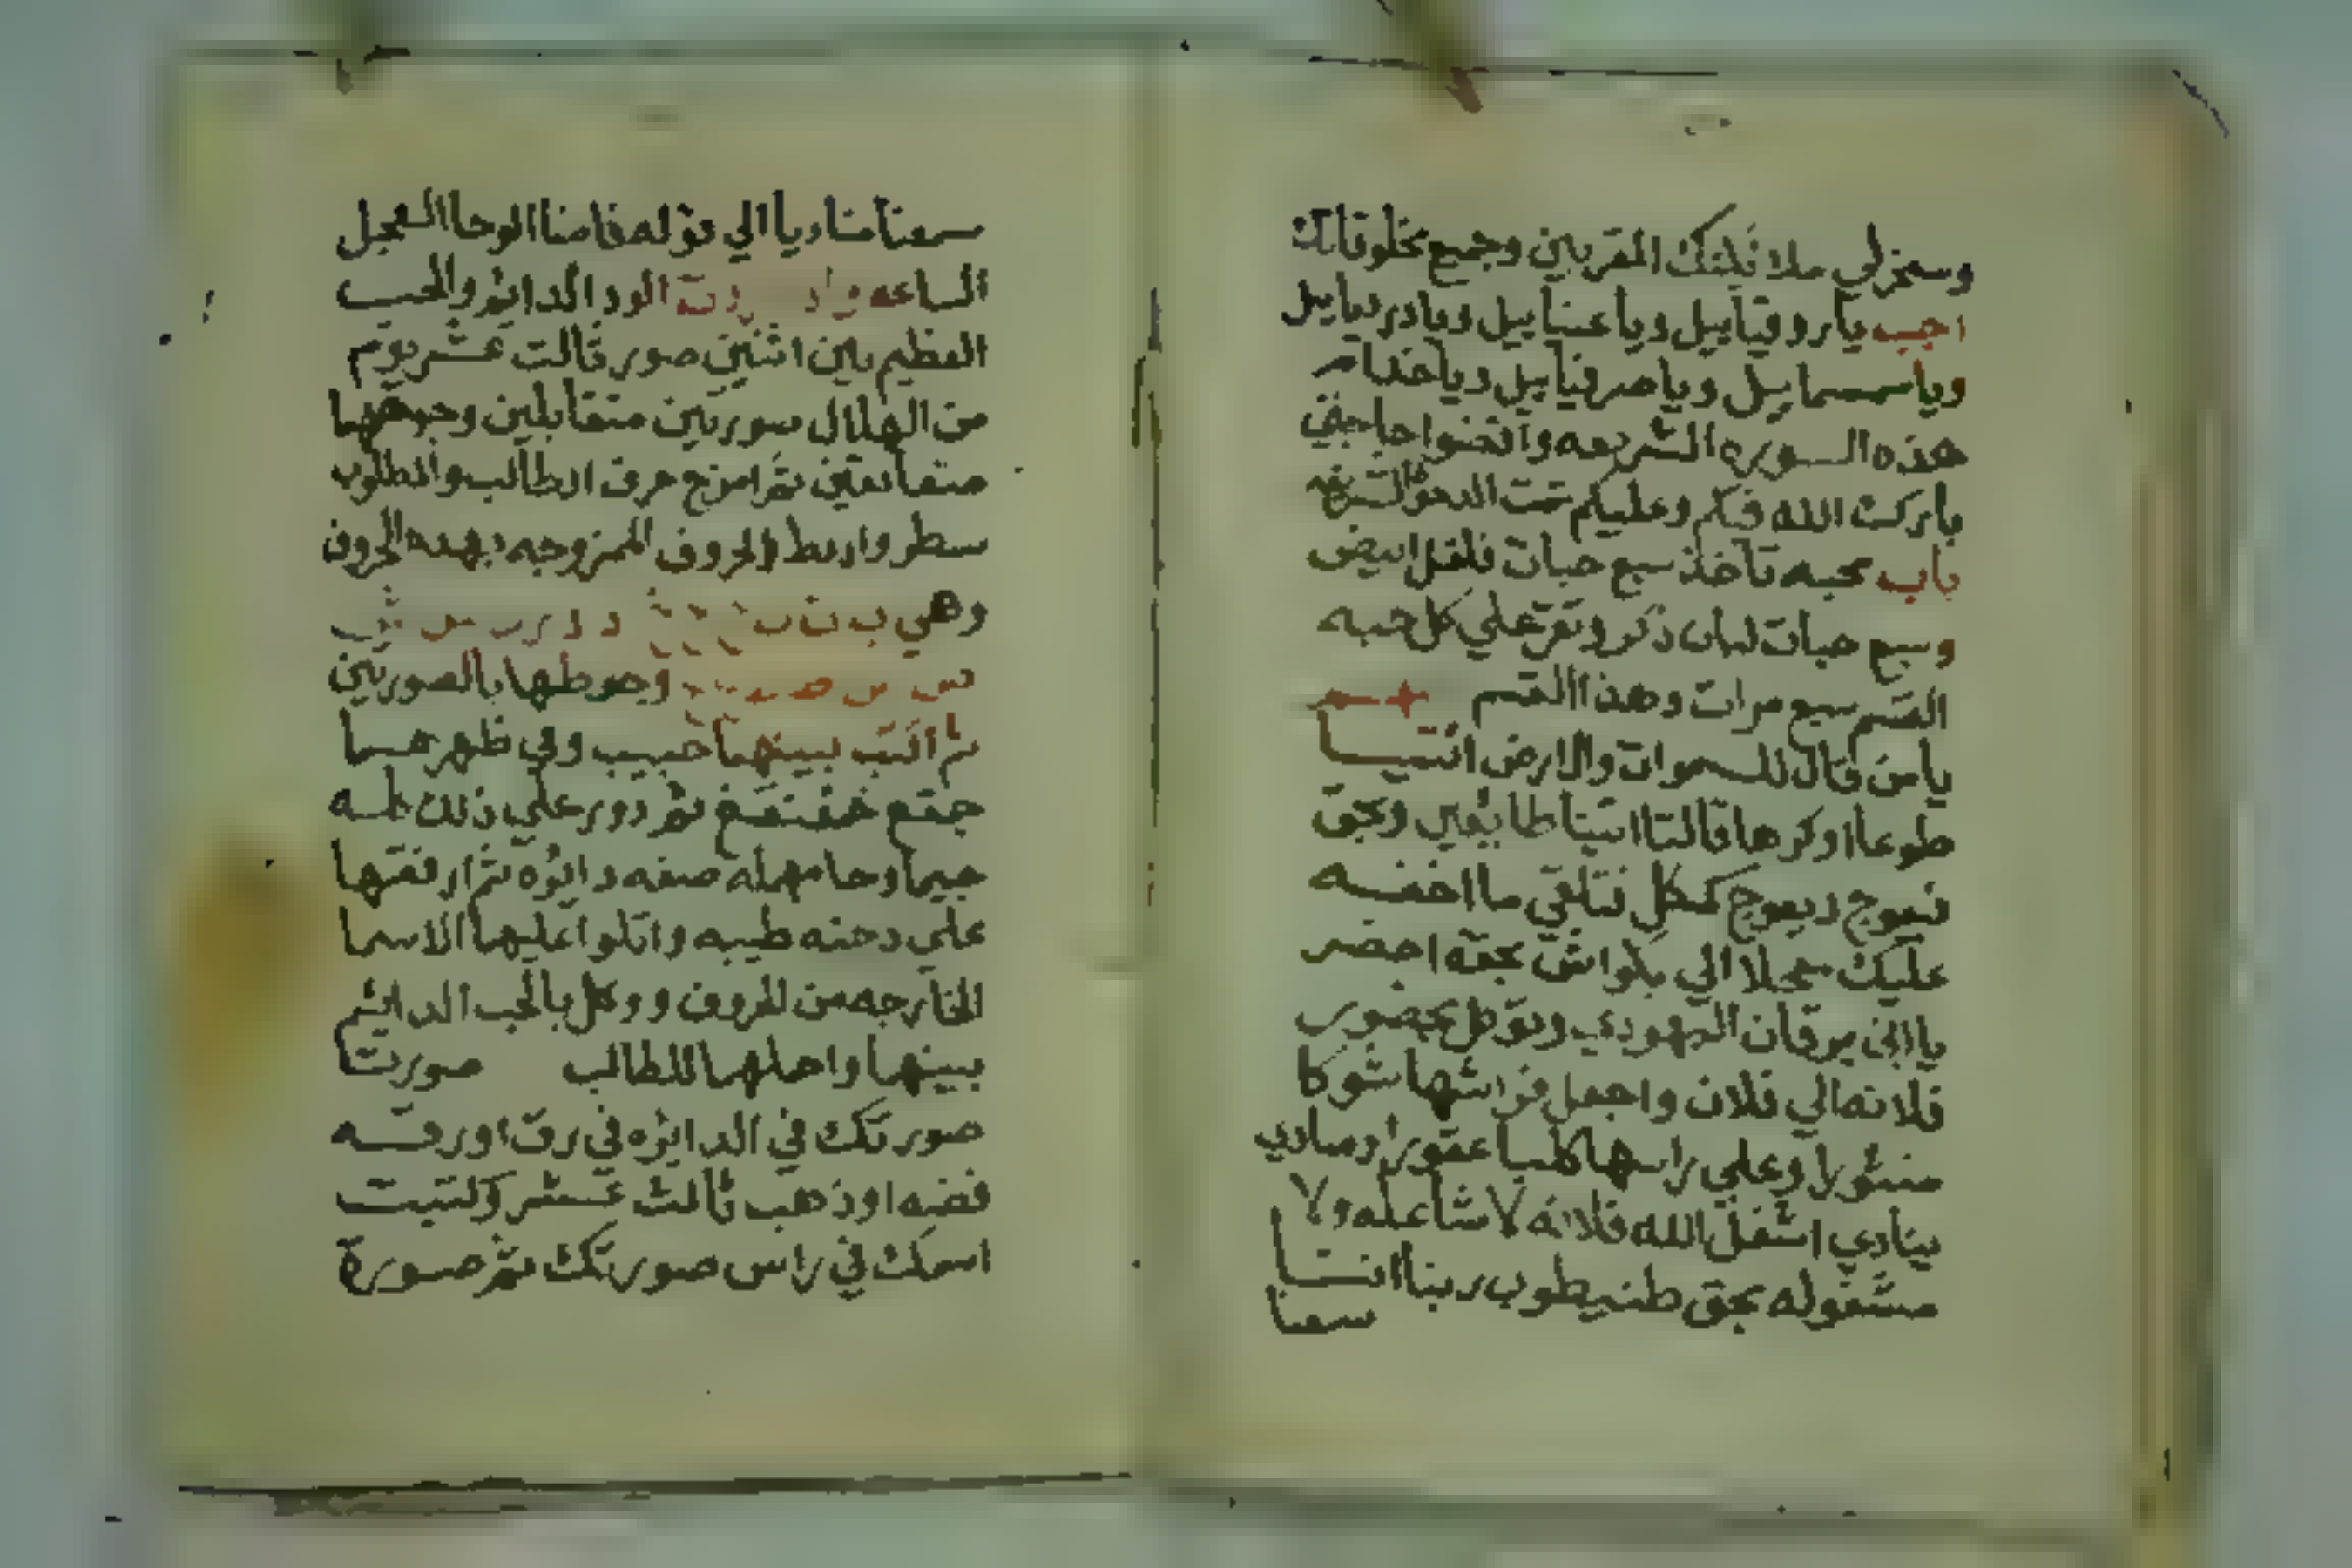 وسخر لي ملائكتك المقربين وجميع مخلوقاتك
اجب ياروقياييل وياعنياييل ويادردياييل
وياسمساييل وياصرفياييل وياخدام
هذه السوره الشريعه واقضوا حاجتي
بارك الله فيكم وعليكم تمت الدعوه
باب محبه تاخذ سبع حبات فلفل ابيض
وسبع حبات لبان ذكر وتقرعلي كل حبه
القسم سبع مرات وهذا القسم
يامن قال للسموات والارض ائتيا
طوعا اوكرها قالتا اتينا طايعين وبحق
عليك عجلا الي بحقه احضر
يا اليهودي وتوكل بحضور
فلانه الي فلان واجعل فراشها شوكا
وعلي راسها كلبا عقورا
ينادي اشغل الله فلانه لا شاعله ولا
مشغوله بحق ربنا اننا
سمعنا
سمعنا مناديا الي قوله فامنا الوحا العجل
الساعه الود الدايم والحب
العظيم بين اثنين صور ثالث عشر يوم
من الهلال صورتين متقابلين وجوههما
متعانقين ثم امزج حرف الطالب والمطلوب
سطر واربط الحروف الممزوجه بهذه الحروف
وهي ب ت ث د ذ ر س ش
س ص وحوطها بالصورتين
ثم اكتب بينهما حبيب وفي ظهرهما
ثم دور علي ذلك كله
جيما وحا مهمله صفه دايره ثم ارفعها
علي دخنه طيبه واتلوا عليها الاسما
الخارجه من الحروف ووكل بالحب الدايم
بينهما واحملها للطالب صورت
صورتك في الدايره في رق او رقه
فضه او ذهب ثالث عشر وكتبت
اسمك في راس صورتك ثم صورة